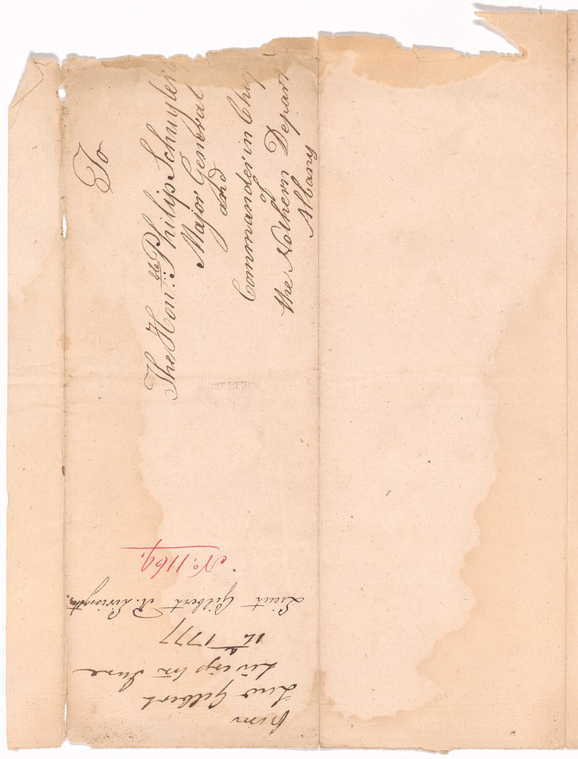 To
The Honble: Philip Schuyler
Major General
and
Commander in Chief
of
the Nothern Depart
Albany
from
Lieut Gilbert
Livingston June
12th 1777
Lieut Gilbert R. Livingston
No. 1169.